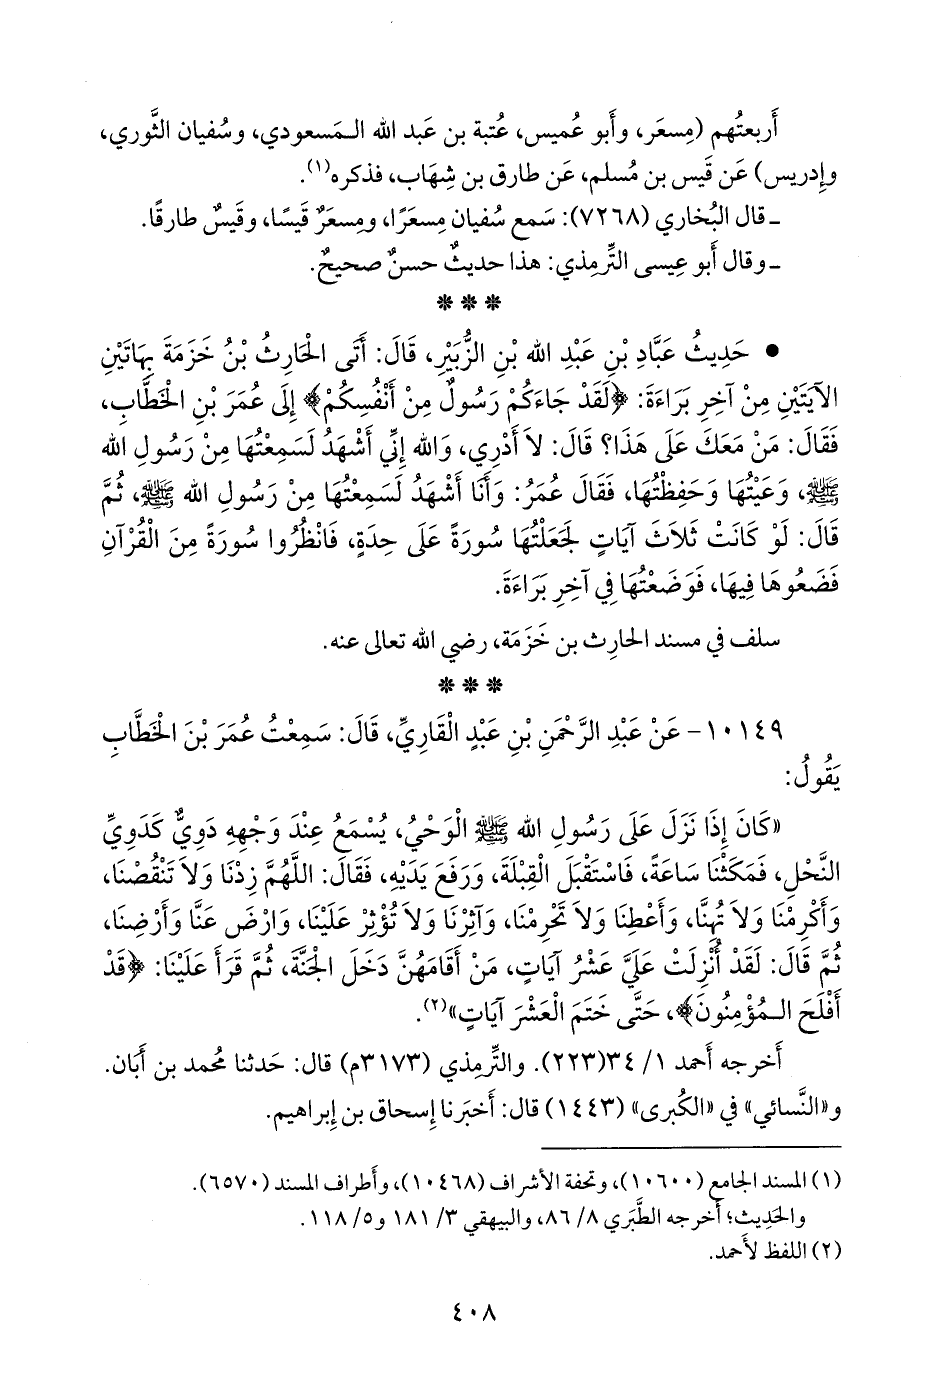 أَربعتُهم (مِسعَر، وأَبو عُميس، عُتبة بن عَبد الله الـمَسعودي، وسُفيان الثَّوري،
وإِدريس) عَن قَيس بن مُسلم، عَن طارق بن شِهَاب، فذكره(١).
ـ قال البُخاري (٧٢٦٨): سَمع سُفيان مِسعَرًا، ومِسعَرٌ قَيسًا، وقَيسٌ طارقًا.
ـ وقال أَبو عيسى التِّرمِذي: هذا حديثٌ حسنٌ صحيحٌ.
* * *
• حَدِيثُ عَبَّادِ بْنِ عَبْدِ الله بْنِ الزُّبَيْرِ، قَالَ: أَتَى الْحَارِثُ بْنُ خَزَمَةَ بِهَاتَيْنِ
الآيَتَيْنِ مِنْ آخِرِ بَرَاءَةَ: ﴿لَقَدْ جَاءَكُمْ رَسُولٌ مِنْ أَنْفُسِكُمْ﴾ إِلَى عُمَرَ بْنِ الْخَطَّابِ،
فَقَالَ: مَنْ مَعَكَ عَلَى هَذَا؟ قَالَ: لاَ أَدْرِي، وَالله إِنِّي أَشْهَدُ لَسَمِعْتُهَا مِنْ رَسُولِ الله
ﷺ، وَعَيْتُهَا وَحَفِظْتُهَا، فَقَالَ عُمَرُ: وَأَنَا أَشْهَدُ لَسَمِعْتُهَا مِنْ رَسُولِ الله ﷺ، ثُمَّ
قَالَ: لَوْ كَانَتْ ثَلاَثَ آيَاتٍ لَجَعَلْتُهَا سُورَةً عَلَى حِدَةٍ، فَانْظُرُوا سُورَةً مِنَ الْقُرْآنِ
فَضَعُوهَا فِيهَا، فَوَضَعْتُهَا فِي آخِرِ بَرَاءَةَ.
سلف في مسند الحارِث بن خَزَمَة، رضي الله تعالى عنه.
* * *
١٠١٤٩- عَنْ عَبْدِ الرَّحْمَنِ بْنِ عَبْدٍ الْقَارِيِّ، قَالَ: سَمِعْتُ عُمَرَ بْنَ الْخَطَّابِ
يَقُولُ:
«كَانَ إِذَا نَزَلَ عَلَى رَسُولِ الله ﷺ الْوَحْيُ، يُسْمَعُ عِنْدَ وَجْهِهِ دَوِيٌّ كَدَوِيِّ
النَّحْلِ، فَمَكَثْنَا سَاعَةً، فَاسْتَقْبَلَ الْقِبْلَةَ، وَرَفَعَ يَدَيْهِ، فَقَالَ: اللَّهُمَّ زِدْنَا وَلاَ تَنْقُصْنَا،
وَأَكْرِمْنَا وَلاَ تُهِنَّا، وَأَعْطِنَا وَلاَ تَحْرِمْنَا، وَآثِرْنَا وَلاَ تُؤْثِرْ عَلَيْنَا، وَارْضَ عَنَّا وَأَرْضِنَا،
ثُمَّ قَالَ: لَقَدْ أُنْزِلَتْ عَلَيَّ عَشْرُ آيَاتٍ، مَنْ أَقَامَهُنَّ دَخَلَ الْجَنَّةَ، ثُمَّ قَرَأَ عَلَيْنَا: ﴿قَدْ
أَفْلَحَ الـمُؤْمِنُونَ﴾، حَتَّى خَتَمَ الْعَشْرَ آيَاتٍ»(٢).
أَخرجه أَحمد ١/ ٣٤(٢٢٣). والتِّرمِذي (٣١٧٣م) قال: حَدثنا مُحمد بن أَبَان.
و«النَّسائي» في «الكُبرى» (١٤٤٣) قال: أَخبَرنا إِسحاق بن إِبراهيم.
(١) المسند الجامع (١٠٦٠٠)، وتحفة الأشراف (١٠٤٦٨)، وأَطراف المسند (٦٥٧٠).
والحَدِيث؛ أَخرجه الطَّبَري ٨/ ٨٦، والبيهقي ٣/ ١٨١ و٥/ ١١٨.
(٢) اللفظ لأَحمد.
٤٠٨